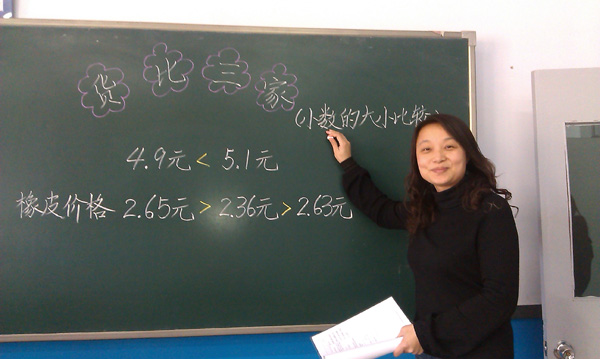 货比三家
(小数的大小比较)
4.9元 < 5.1元
橡皮价格 2.65元 > 2.36元 > 2.63元